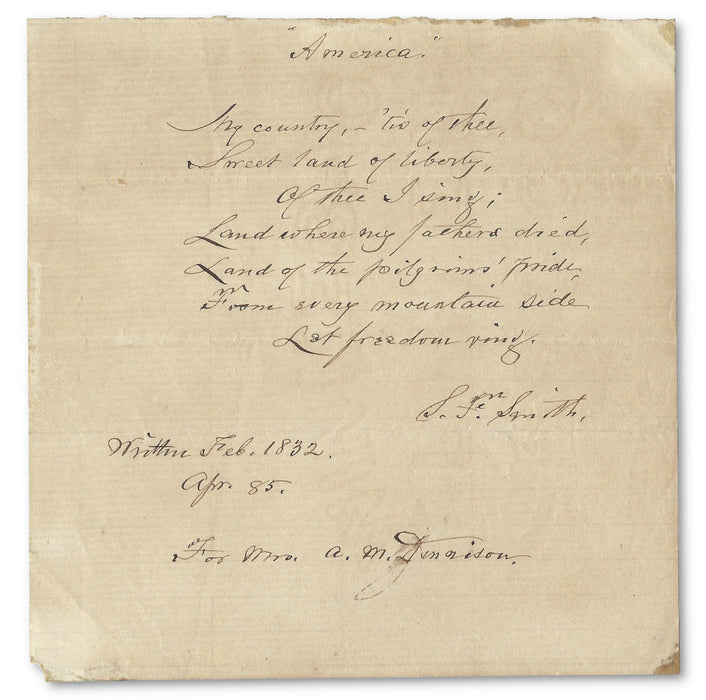 "America."
My country, – 'tis of thee,
Sweet land of liberty,
Of thee I sing;
Land where my fathers died,
Land of the pilgrims' pride,
From every mountain side
Let freedom ring.
S. F. Smith.
Written Feb. 1832.
Apr. 85.
For Mrs. A. M. Dennison.